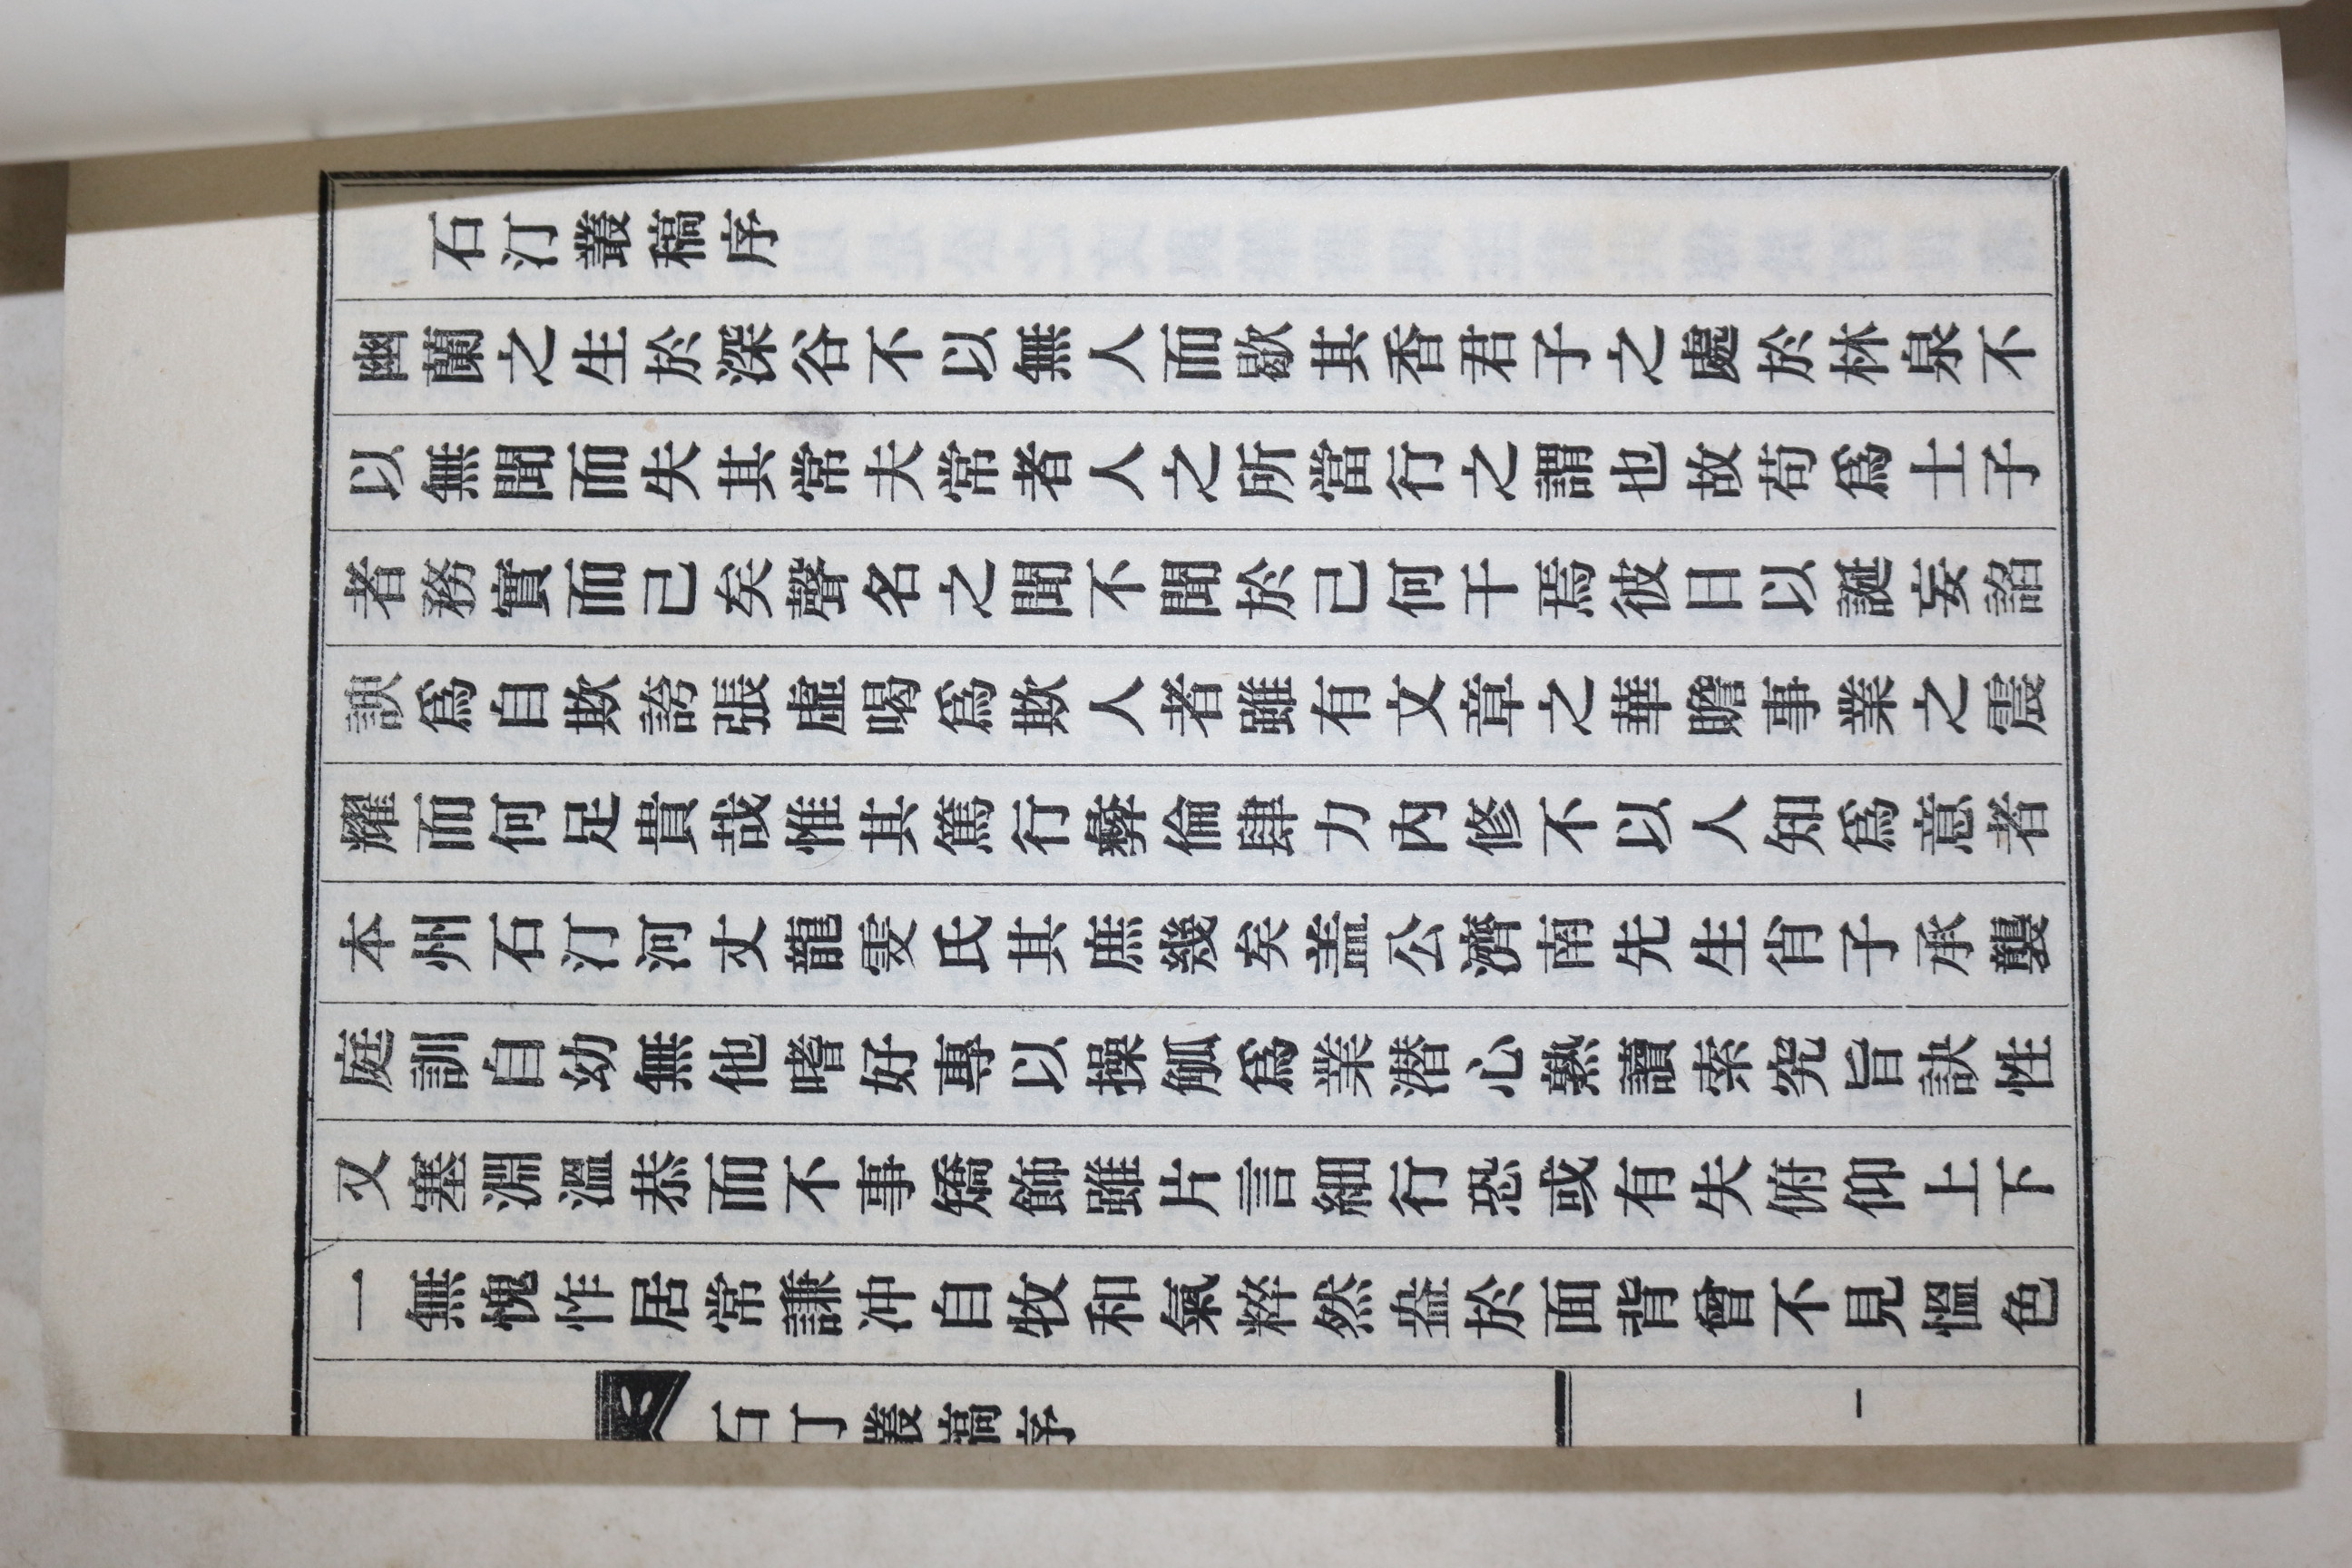 石汀叢稿序
幽蘭之生於深谷不以無人而歇其香君子之處於林泉不
以無聞而失其常夫常者人之所當行之謂也故苟爲士子
者務實而已矣聲名之聞不聞於己何干焉彼日以誕妄諂
諛爲自欺誇張虛喝爲欺人者雖有文章之華贍事業之震
耀而何足貴哉惟其篤行彛倫肆力內修不以人知爲意者
本州石汀河丈龍雯氏其庶幾矣盖公濟南先生肖子承襲
庭訓自幼無他嗜好專以操觚爲業潜心熟讀索究旨訣性
又塞淵溫恭而不事矯飾雖片言細行恐或有失俯仰上下
一無愧怍居常謙冲自牧和氣粹然盎於面背曾不見慍色
石汀叢稿序
一